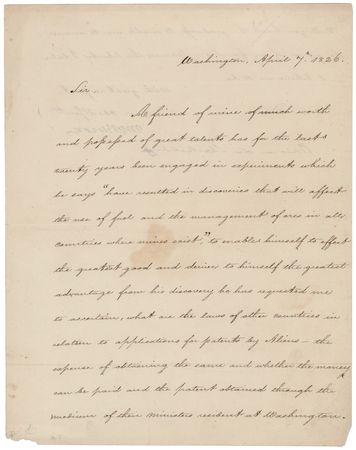 Washington, April 7th 1826.
Sir,
A friend of mine of much worth
and possessed of great talents has for the last
twenty years been engaged in experiments which
he says "have resulted in discoveries that will affect
the use of fuel and the management of ores in all
countries where mines exist," to enable himself to effect
the greatest good and derive to himself the greatest
advantage from his discovery he has requested me
to ascertain, what are the laws of other countries in
relation to applications for patents by Aliens — the
expense of obtaining the same and whether the money
can be paid and the patent obtained through the
medium of their ministers resident at Washington.